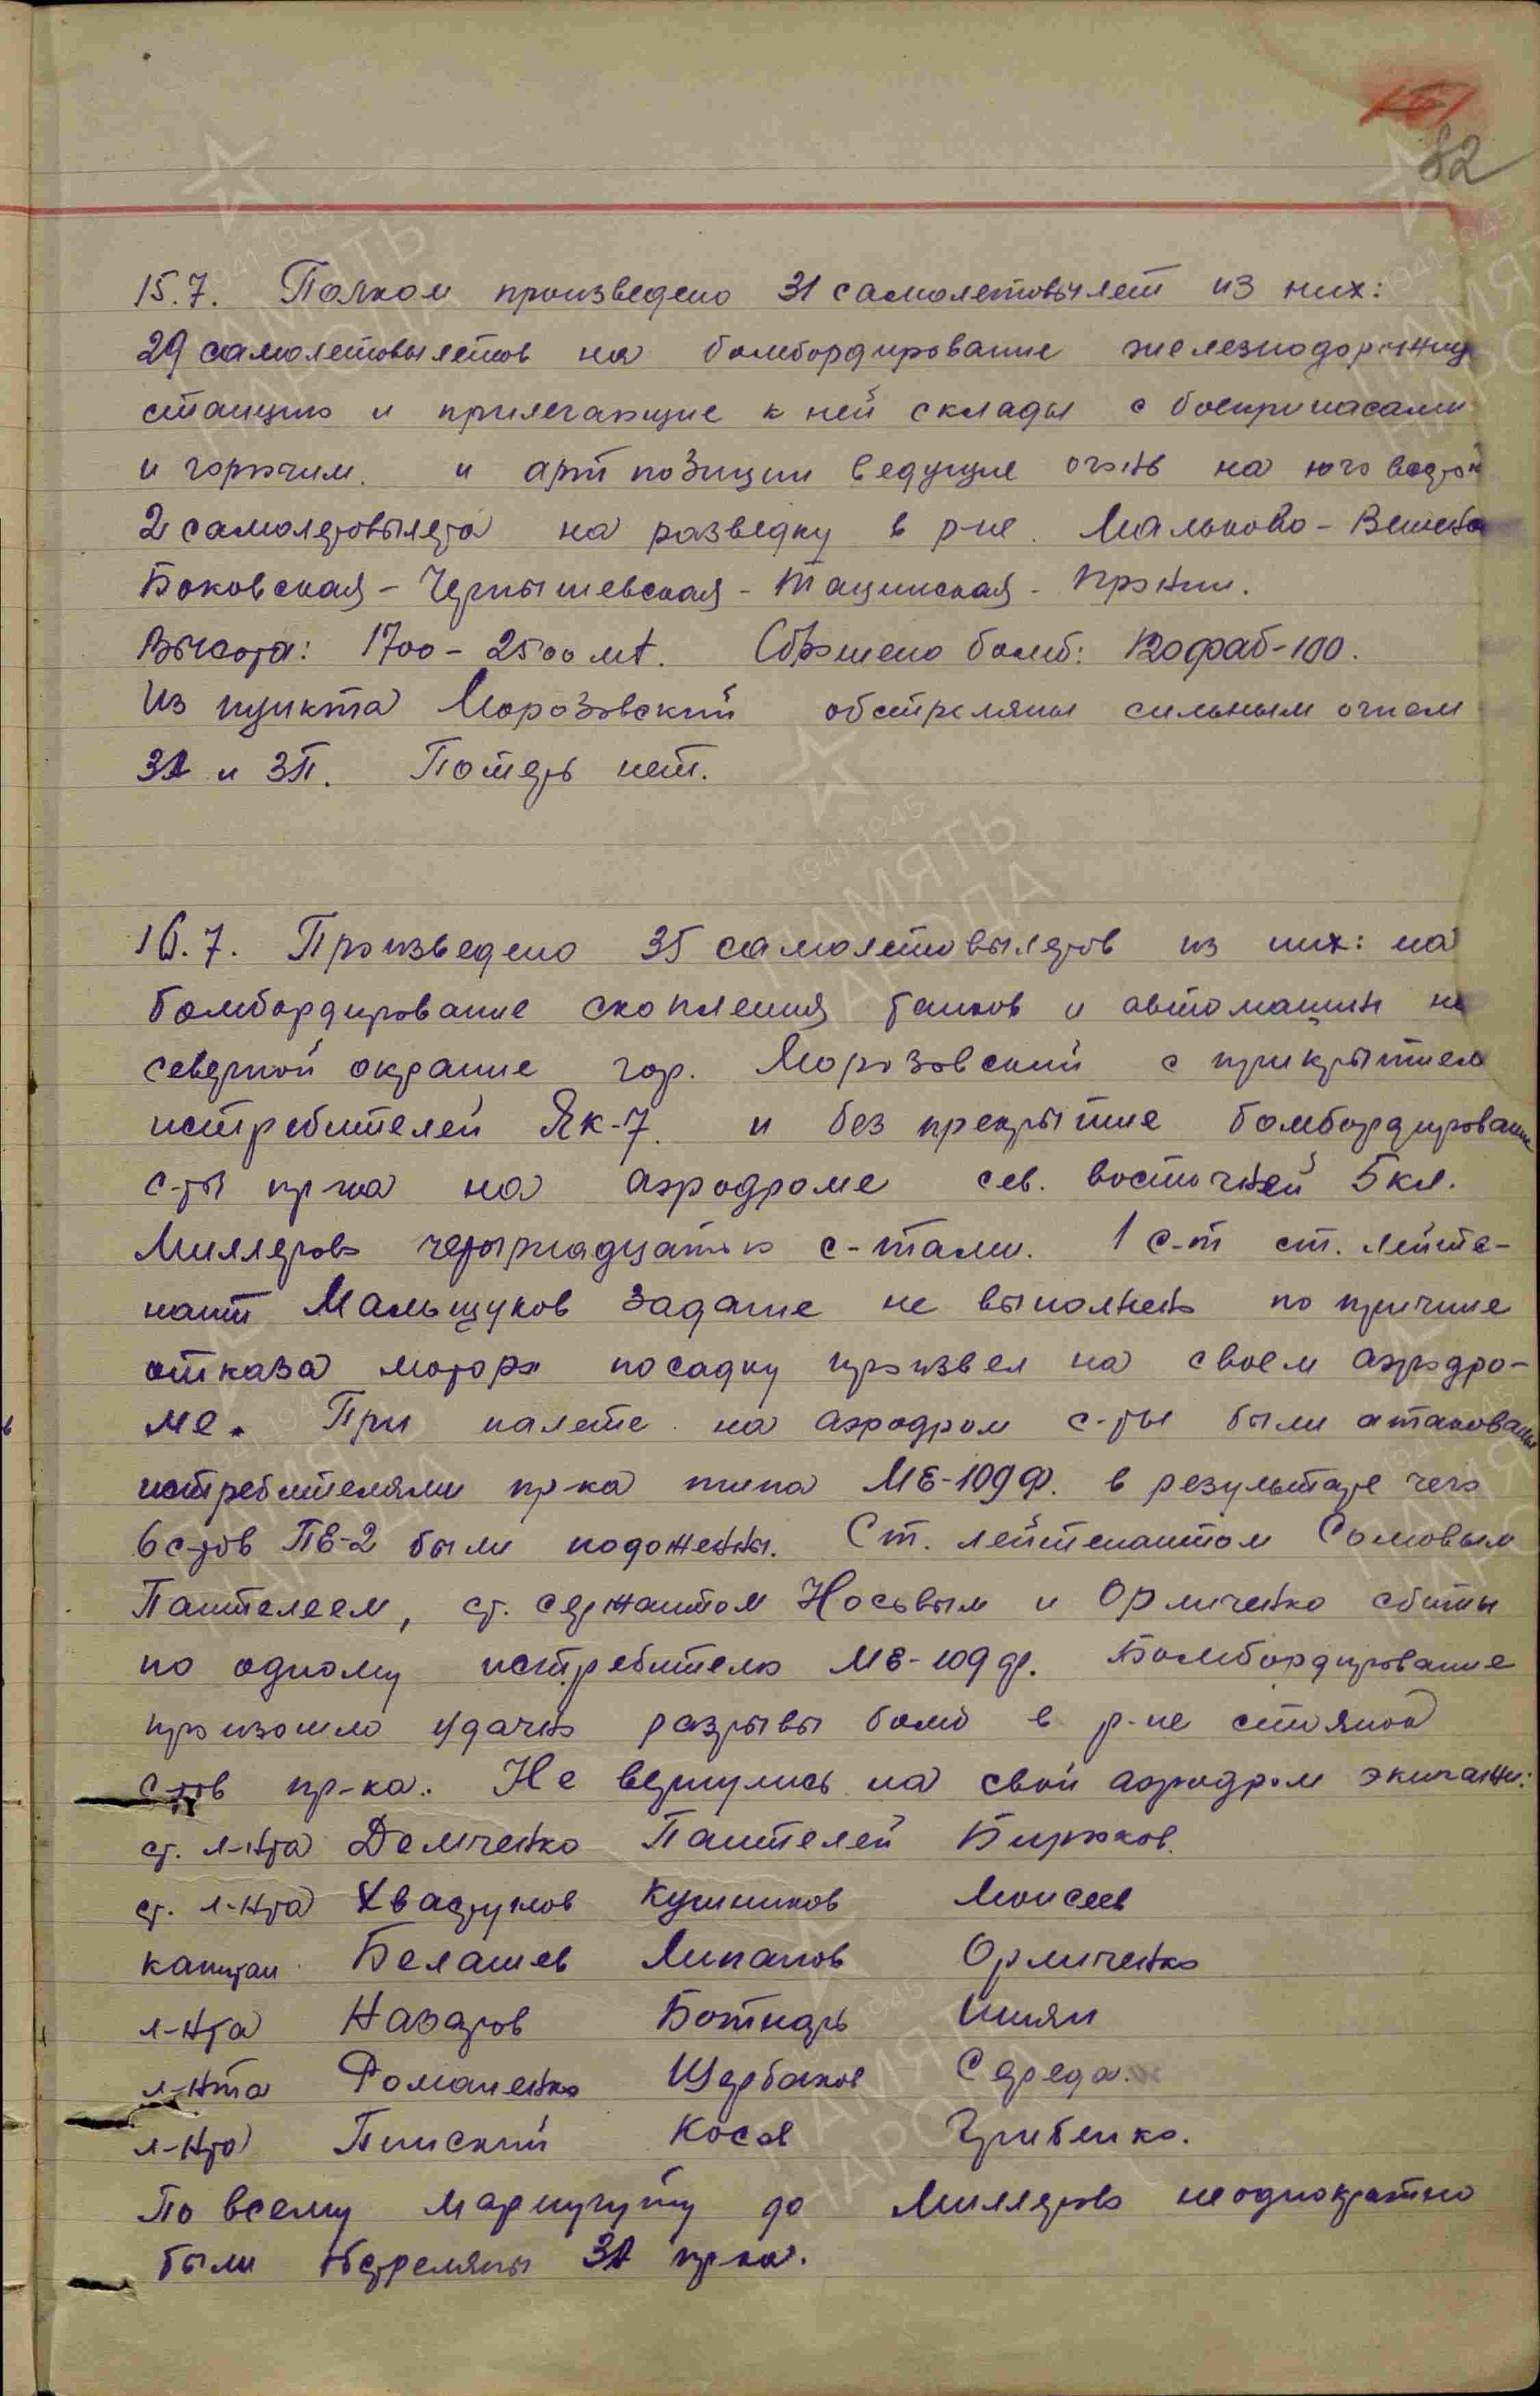 82
15.7. Полком произведено 31 самолетовылет из них:
29 самолетовылетов на бомбордирование железнодорожную
станцию и прилегающие к ней склады с боеприпасами
и горючим. и арт позиции ведущие огонь на юго восток
2 самолетовылета на разведку в р-не. Мальково - Вешенска
Боковская - Чернышевская - Тацинская - Пронин.
Высота: 1700 - 2500 мт. Сброшено бомб: 120 фаб-100.
Из пункта Морозовский обстреляны сильным огнем
ЗА и ЗП. Потерь нет.
16.7. Произведено 35 самолетовылетов из них: на
бомбордирование скопления танков и автомашин на
северной окраине гор. Морозовский с прикрытием
истребителей Як-7. и без прекрытие бомбордирование
с-ты пр-ка на аэродроме сев. восточней 5 км.
Миллерово четырнадцатью с-тами. 1 с-т ст. лейте-
нант Мальщуков задание не выполнено по причине
отказа мотора посадку произвел на своем аэродро-
ме. При налете на аэродром с-ты были атакованы
истребителями пр-ка типа МЕ-109Ф. в результате чего
6 с-тов ПЕ-2 были подожжены. Ст. лейтенантом Сомовым
Пантелеем, ст. сержантом Носовым и Ормиченко сбиты
по одному истребителю МЕ-109ф. Бомбордирование
произошло удачно разрывы бомб в р-не стоянок
с-тов пр-ка. Не вернулись на свой аэродром экипажи:
ст. л-нта Демченко Пантелей Бирюков.
ст. л-нта Хвастунов Кушников Моисеев
капитан Белашев Липатов Ормиченко
л-нта Назаров Ботнарь Шиян
л-нта Романенко Щербаков Середа.
л-нта Пинский Косов Грибенко.
По всему маршруту до Миллерово неоднократно
были обстреляны ЗА пр-ка.
1941-1945
ПАМЯТЬ
НАРОДА